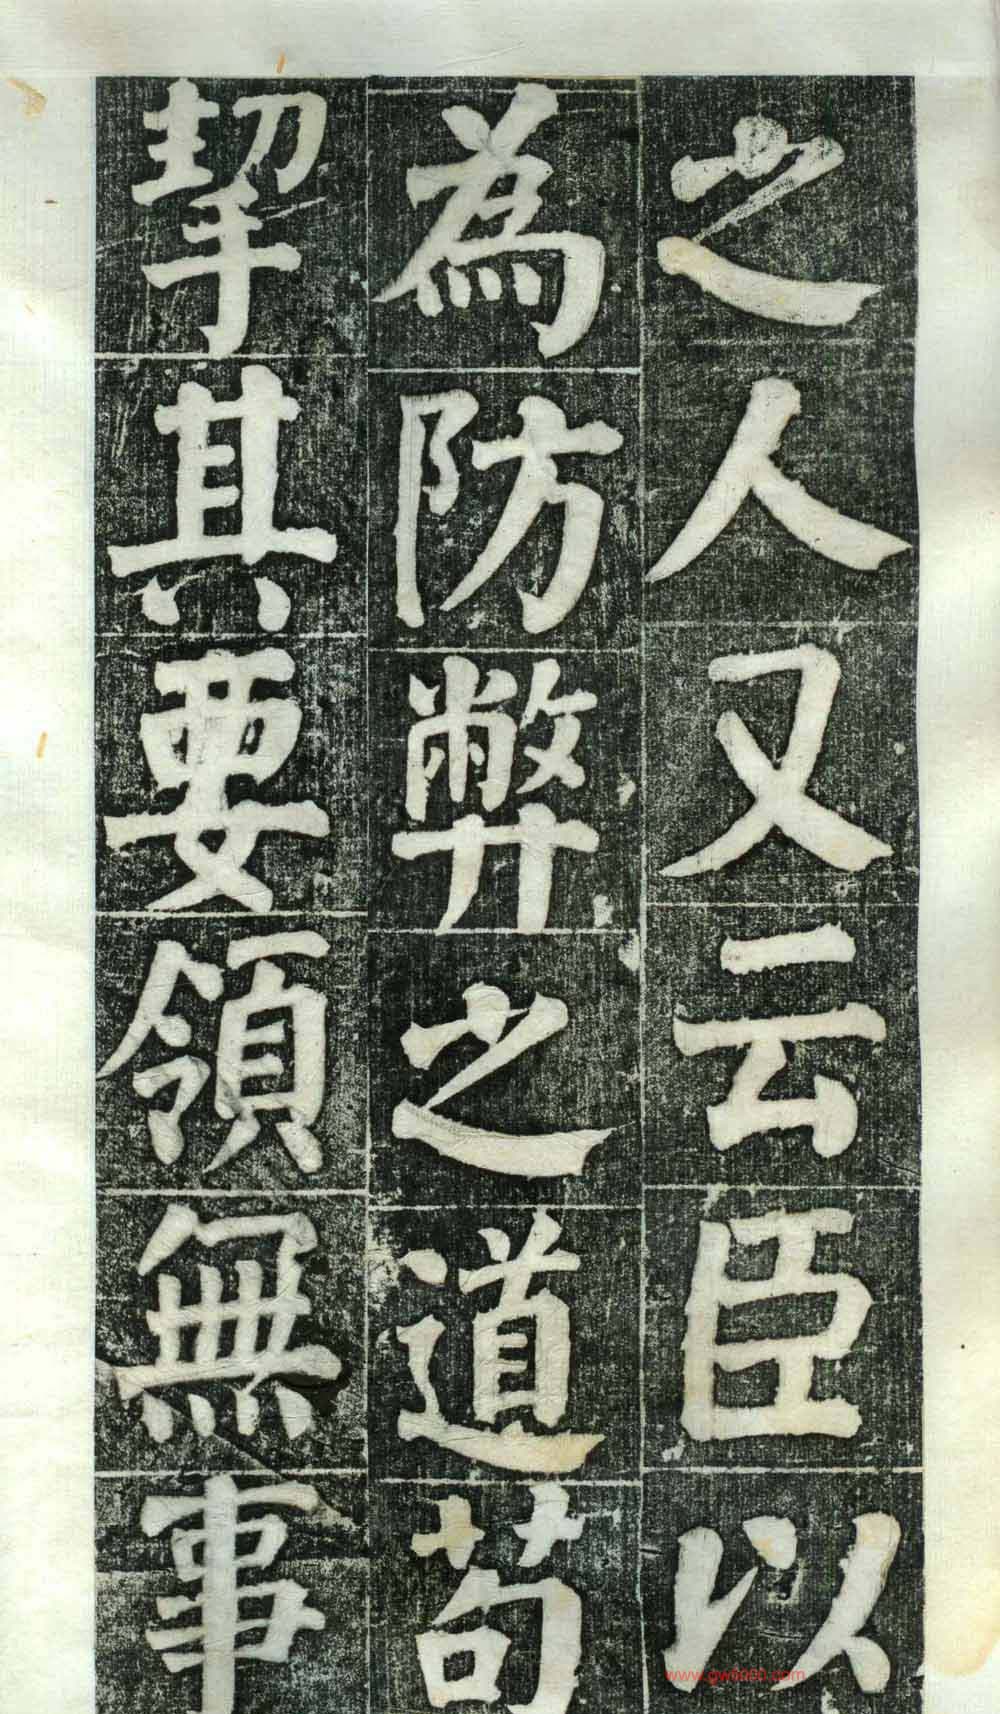 之人又云臣以
為防弊之道苟
挈其要領無事
www.gwfk090.com